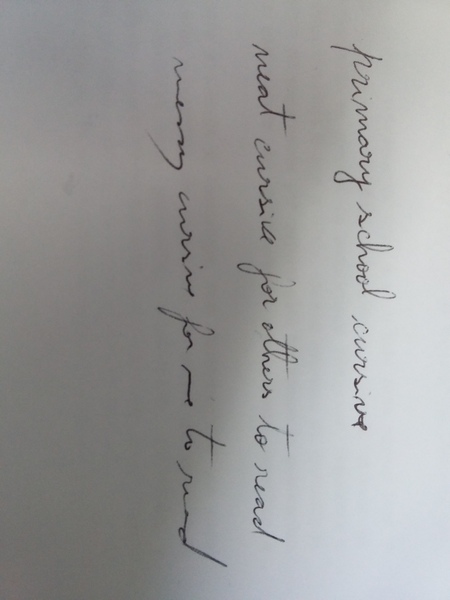 primary school cursive
neat cursive for others to read
messy cursive for me to read